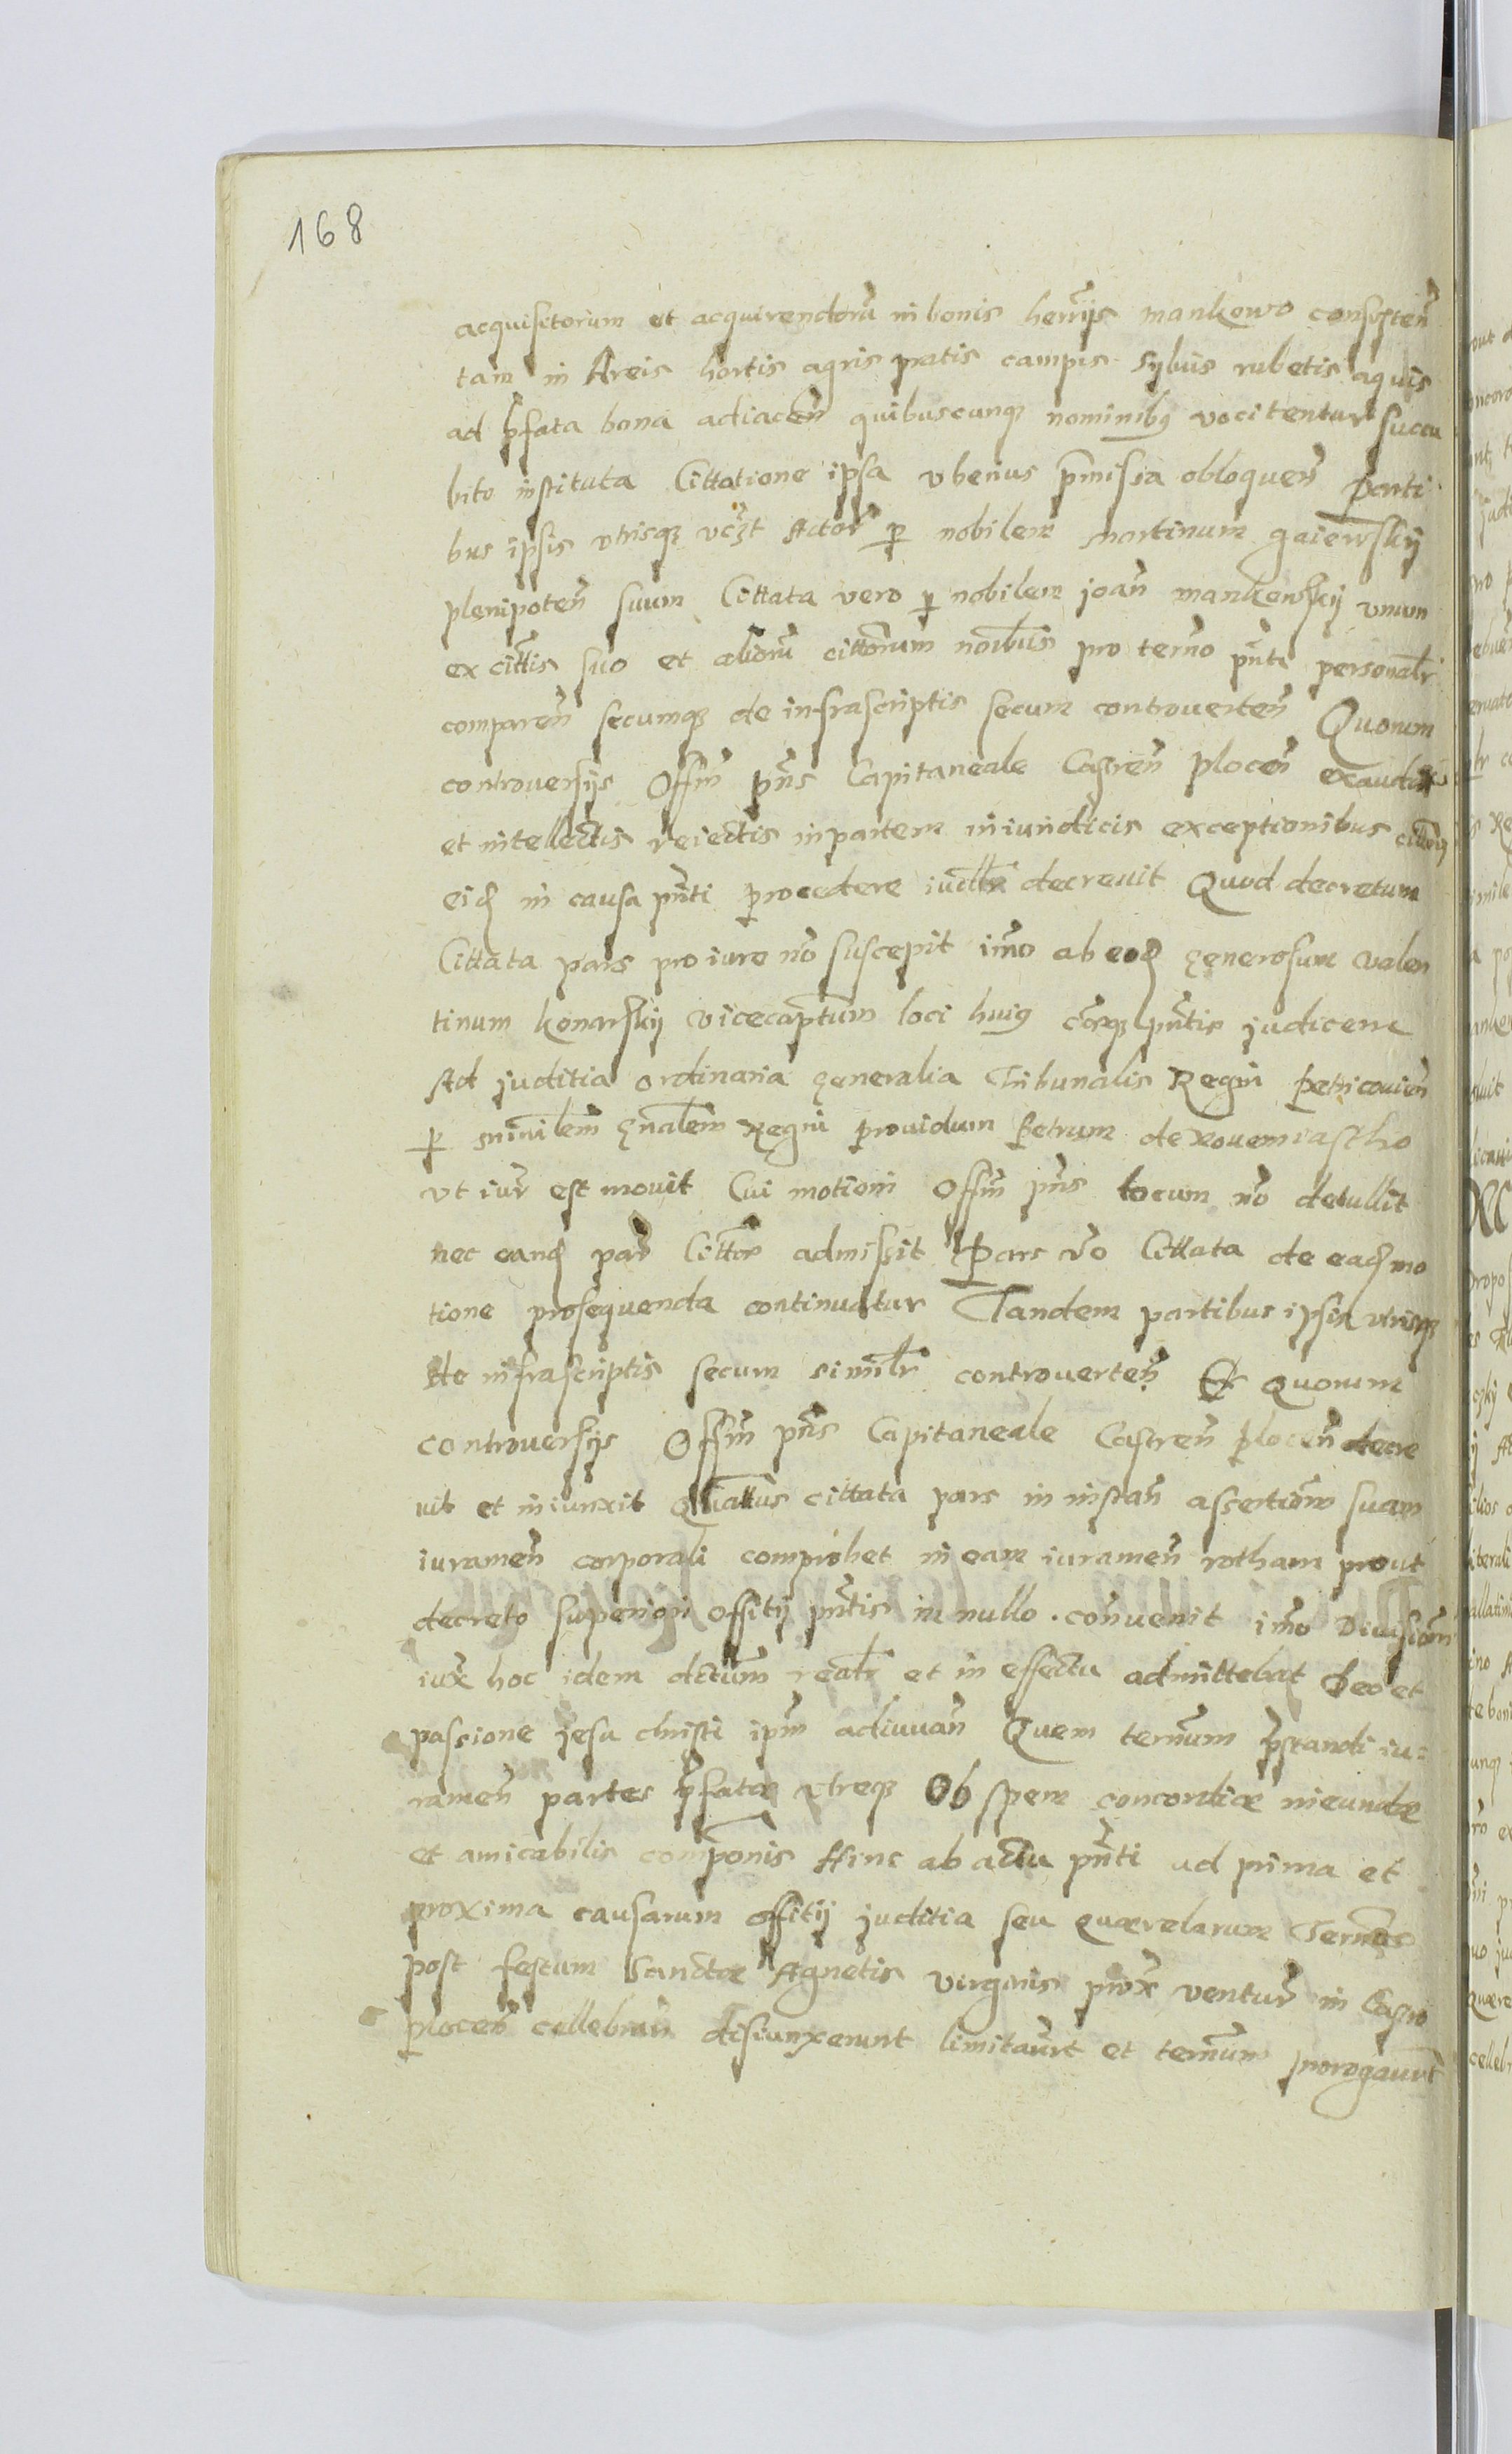 168
acquisitorum et acquirendorũ in bonis herrijs mankowo consisten̄
tam in Areis hortis agris pratis campis sylvis rubetis aquis
ad p̄fata bona adiacen̄ quibuscunqꝫ nominibꝯ vocitentur succu
bito instituta Cittatione ipsa vberius p̄missa obloquen̄ parti
bus ipsis vtrisqꝫ vcꝫt Actor̄ ꝑ nobilem martinum gaiewskij
plenipoten̄ suum Cittata vero ꝑ nobilem joan̄ mankowskij vnum
ex citt̄is suo et aliorũ citt̄orum noībus pro termo pn̄ti personalr̄
comparen̄ secumqꝫ de infrascriptis secum controverten̄ Quorum
controversijs Offm̄ pn̄s Capitaneale Castren̄ plocen̄ exauditis
et intellectis reiectis in partem iniuridicis exceptionibus
eiꝗ in causa pn̄ti procedere iudllr̄ decrevit Quod decretum
Cittata pars pro iure no͂ suscepit im̄o ab eoꝗ generosum valen
tinum konarskij vicecaptũm loci huiꝯ cãqꝫ pn̄tis judicem
Ad juditia ordinaria generalia Tribunalis Regni petricovien̄
ꝑ ministerialem gn̄alem Regni providum Petrum de
vt iur̄ est movit Cui motioni Offm̄ pn̄s locum no͂ detullit
nec eanꝗ par̄ Citt̄ae admissit Pars vo͂ Cittata de eaꝗ mo
tione prosequenda continuatur Tandem partibus ipsis vtrisqꝫ
de infrascriptis secum similr̄ controverten̄ Ex quorum
controversijs Offm̄ pn̄s Capitaneale Castren̄ plocen̄ decre
vit et iniunxit Qu̅attus cittata pars in instan̄ assertionem suam
iuramen̄ corporali comprobet in eam iuramen̄ rotham prout
decreto superiori offitij pn̄tis in nullo convenit im̄o Divisionem
iux̄ hoc idem dctũm realr̄ et in effectu admittebat Deo et
passione jesu christi ipm̄ adiuvan̄ Quem terminum p̄standi iu=
ramen̄ partes p̄fatae vtreqꝫ Ob spem concordiae ineundae
et amicabilis componis Hinc ab actu pn̄ti ad prima et
proxima causarum offitij juditia seu quaerelarum Terminos
post festum Sanctae Agnetis virginis prox̄ ventur̄ in Castro
plocen̄ cellebran̄ disiunxerunt limitavrt̄ et terminum prorogavrt̄